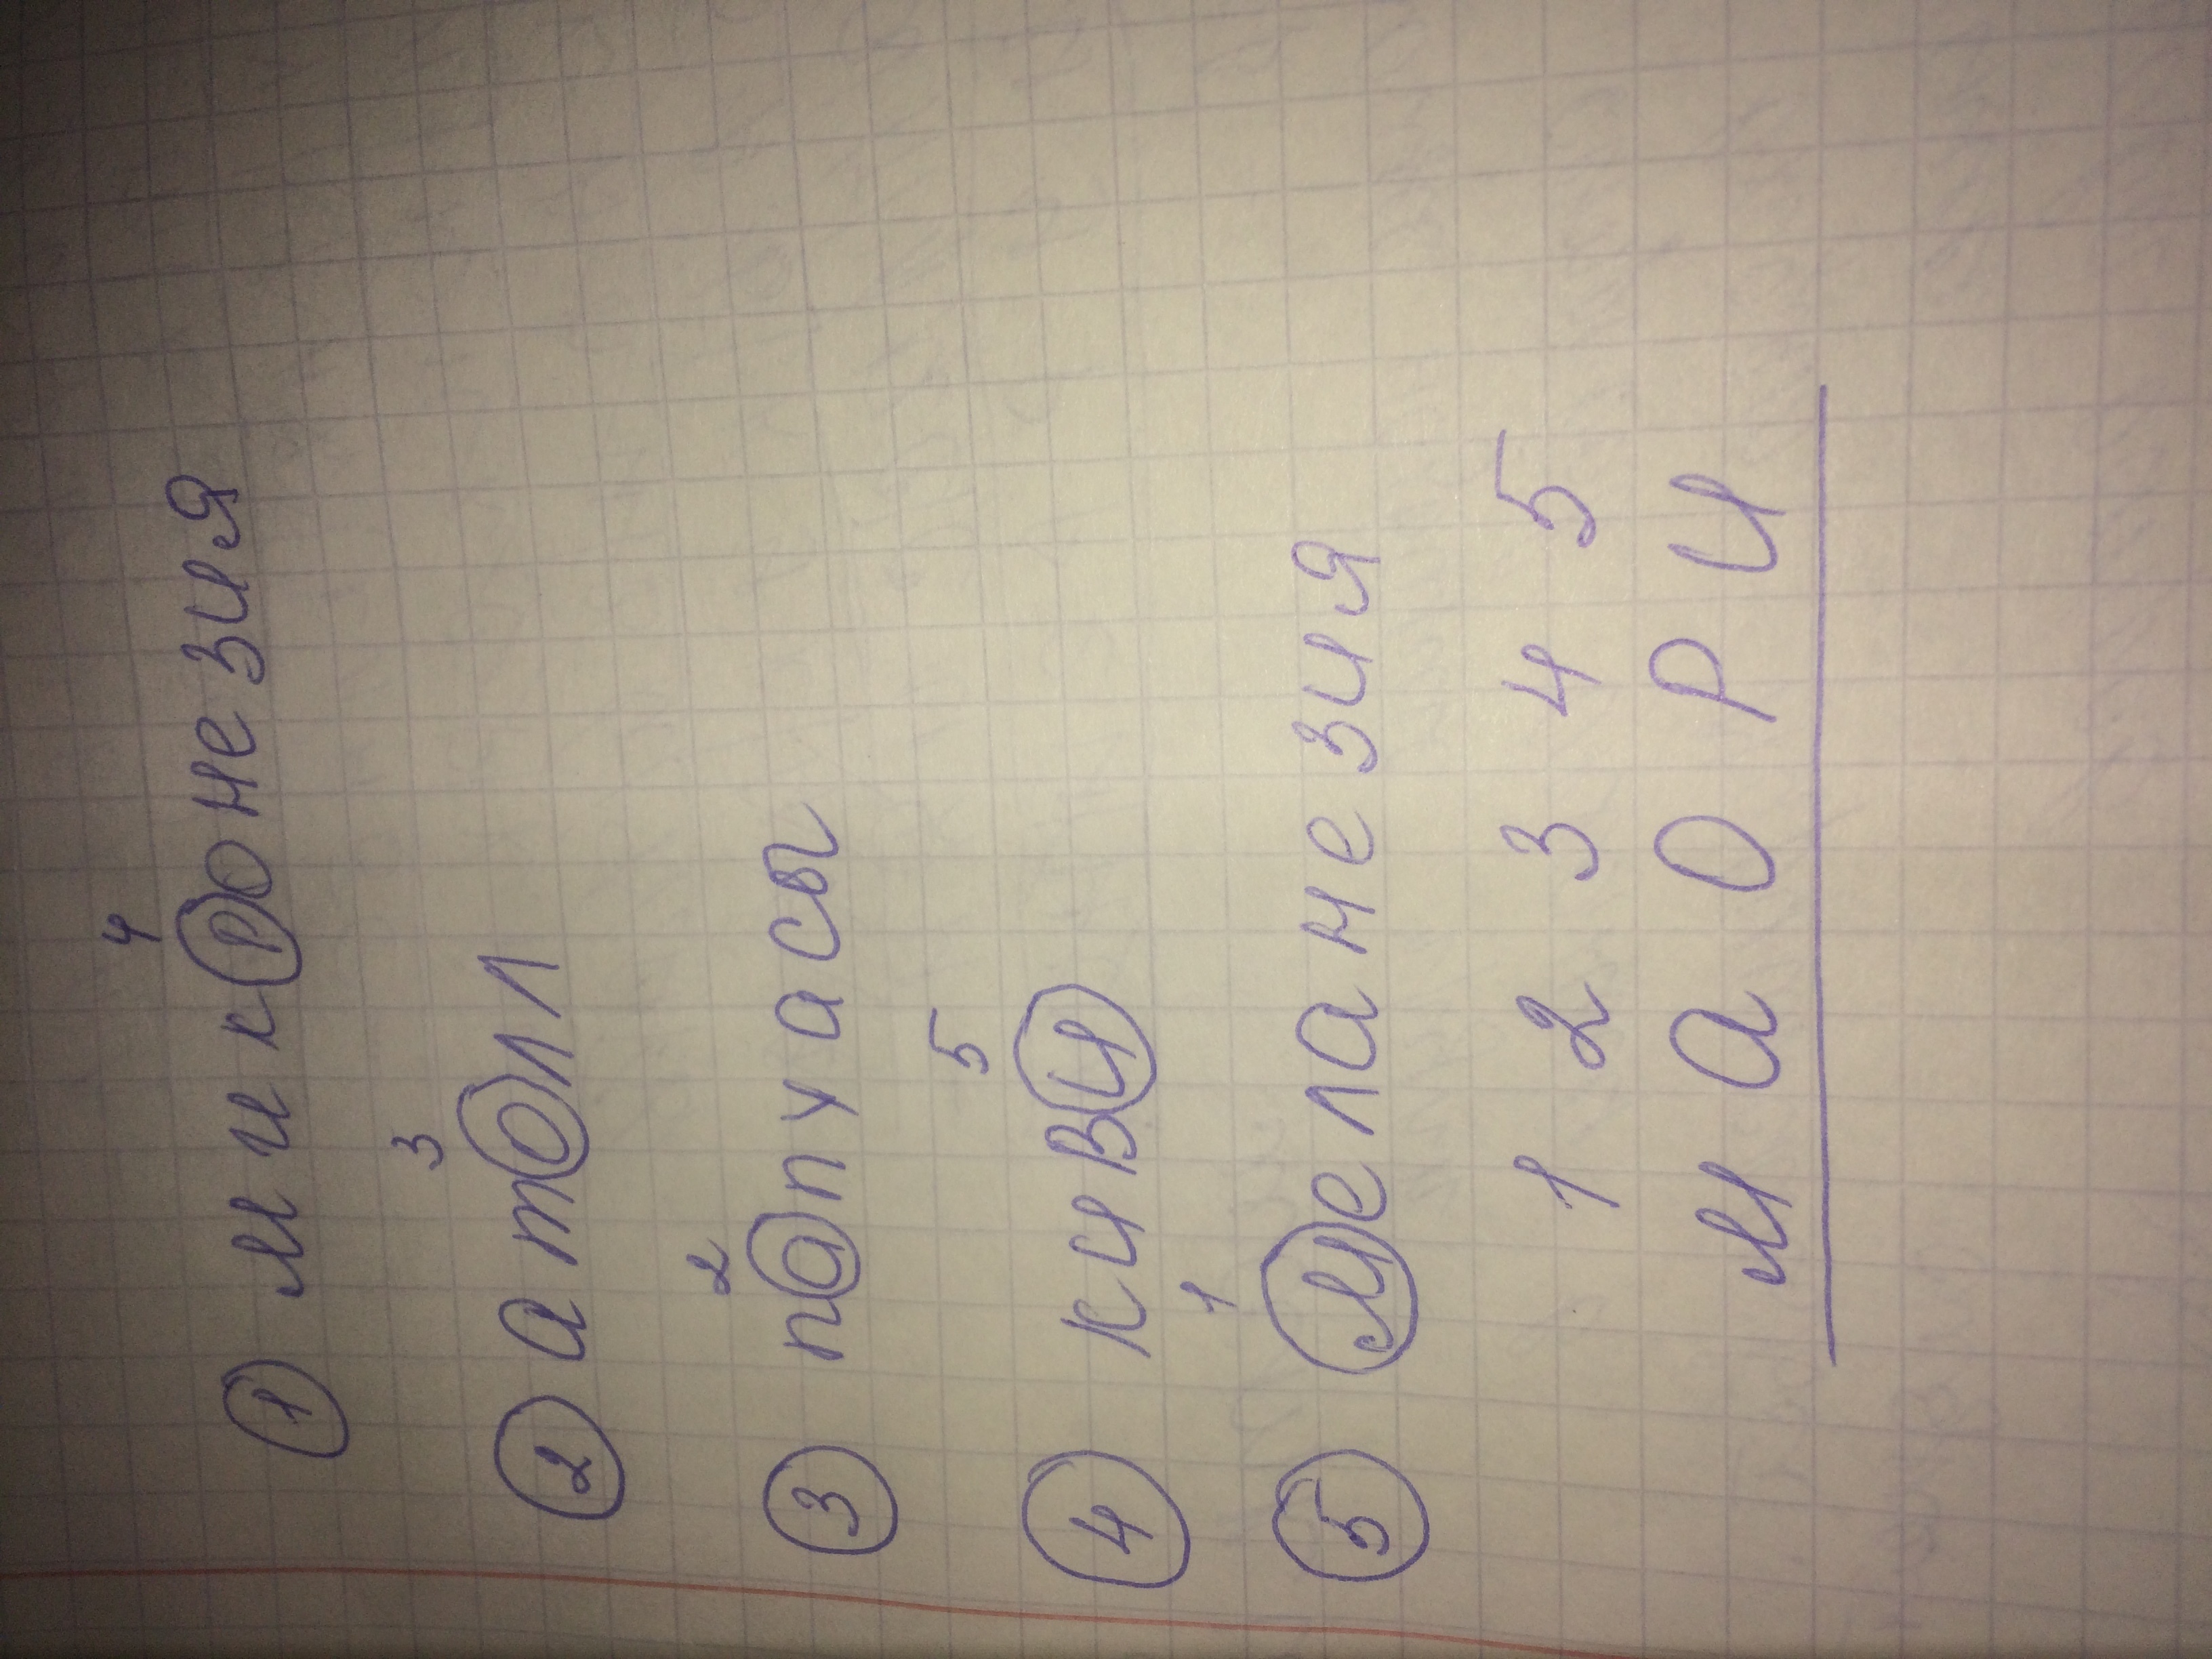 4
① микронезия
3
② атолл
2
③ папуасы
5
④ киви
1
⑤ меланезия
1 2 3 4 5
м а о р и